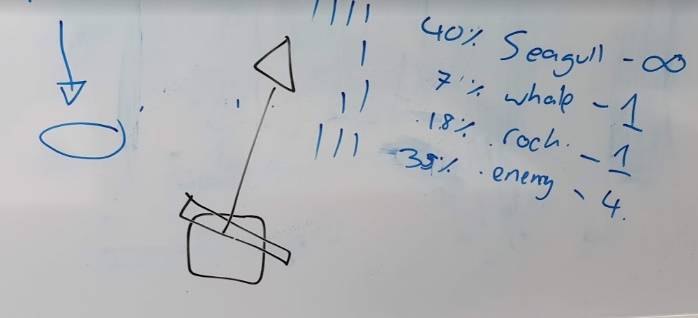 40% Seagull - ∞
7% whale - 1
18% rock - 1
35% energy - 4